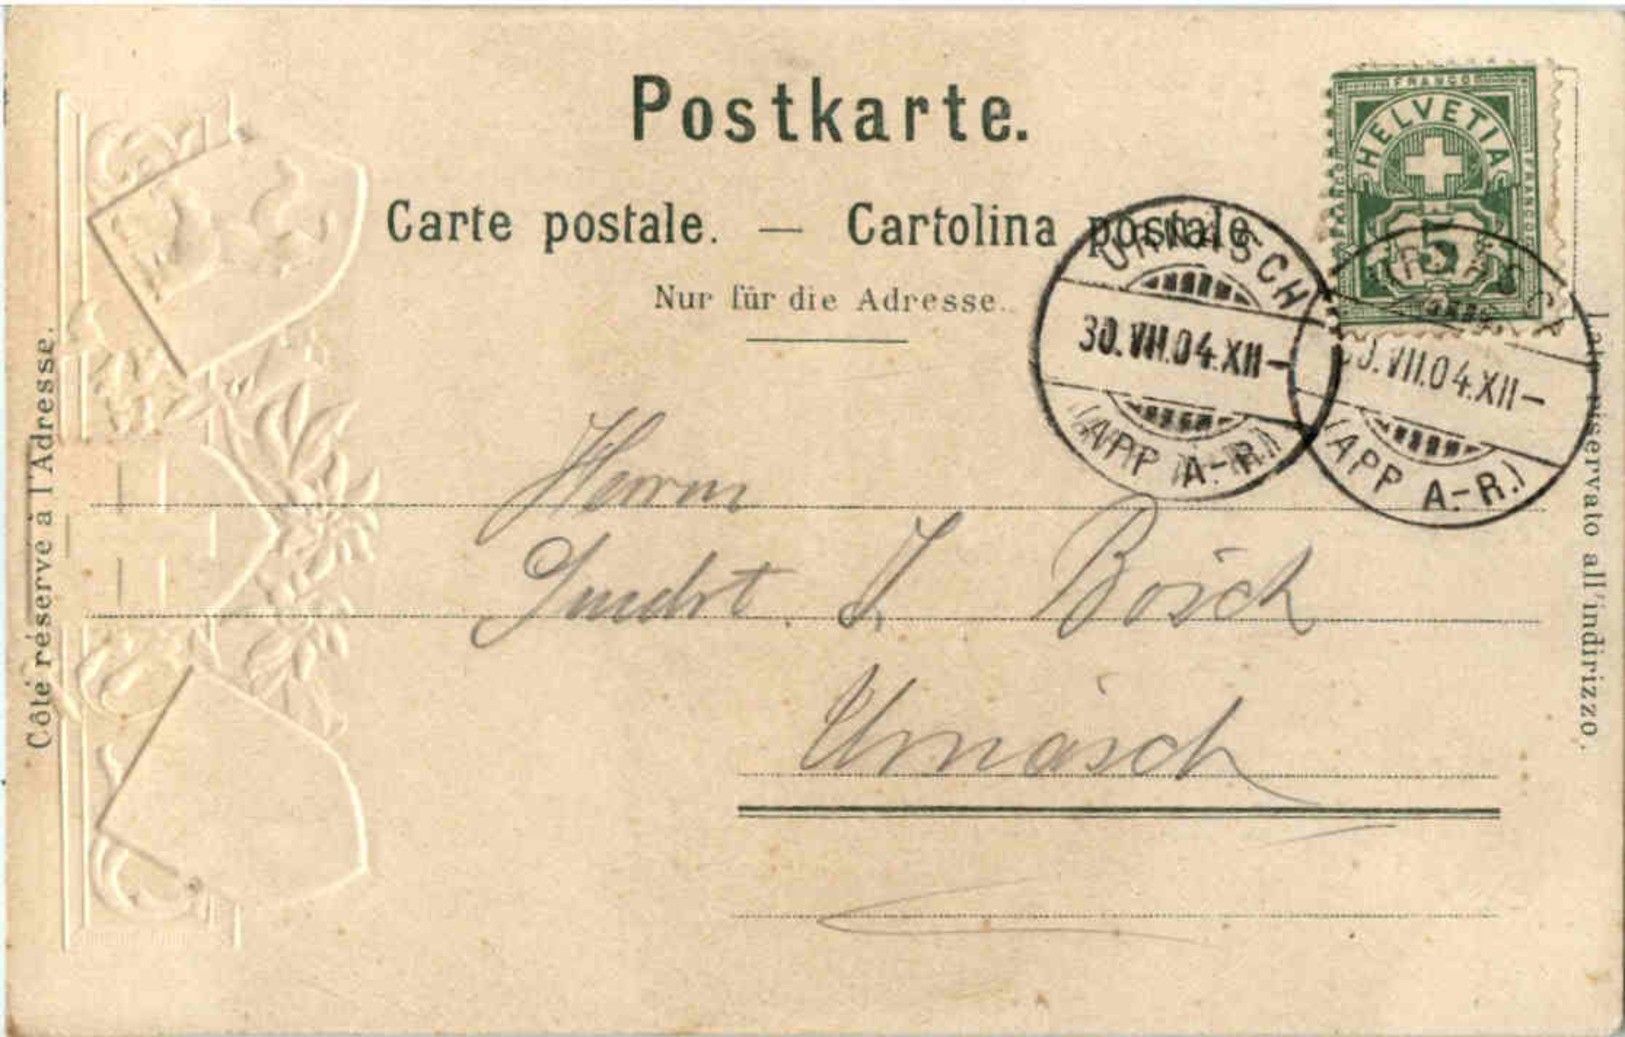 Postkarte.
Carte postale. — Cartolina postale
Nur für die Adresse.
FRANCO
HELVETIA
FRANCO
FRANCO
5
URNÄSCH
30.VII.04.XII-
(APP A.-R.)
30.VII.04.XII-
(APP A.-R.)
Côté réservé à l'Adresse.
Lato riservato all'indirizzo.
Herrn
J. Bösch
Urnäsch